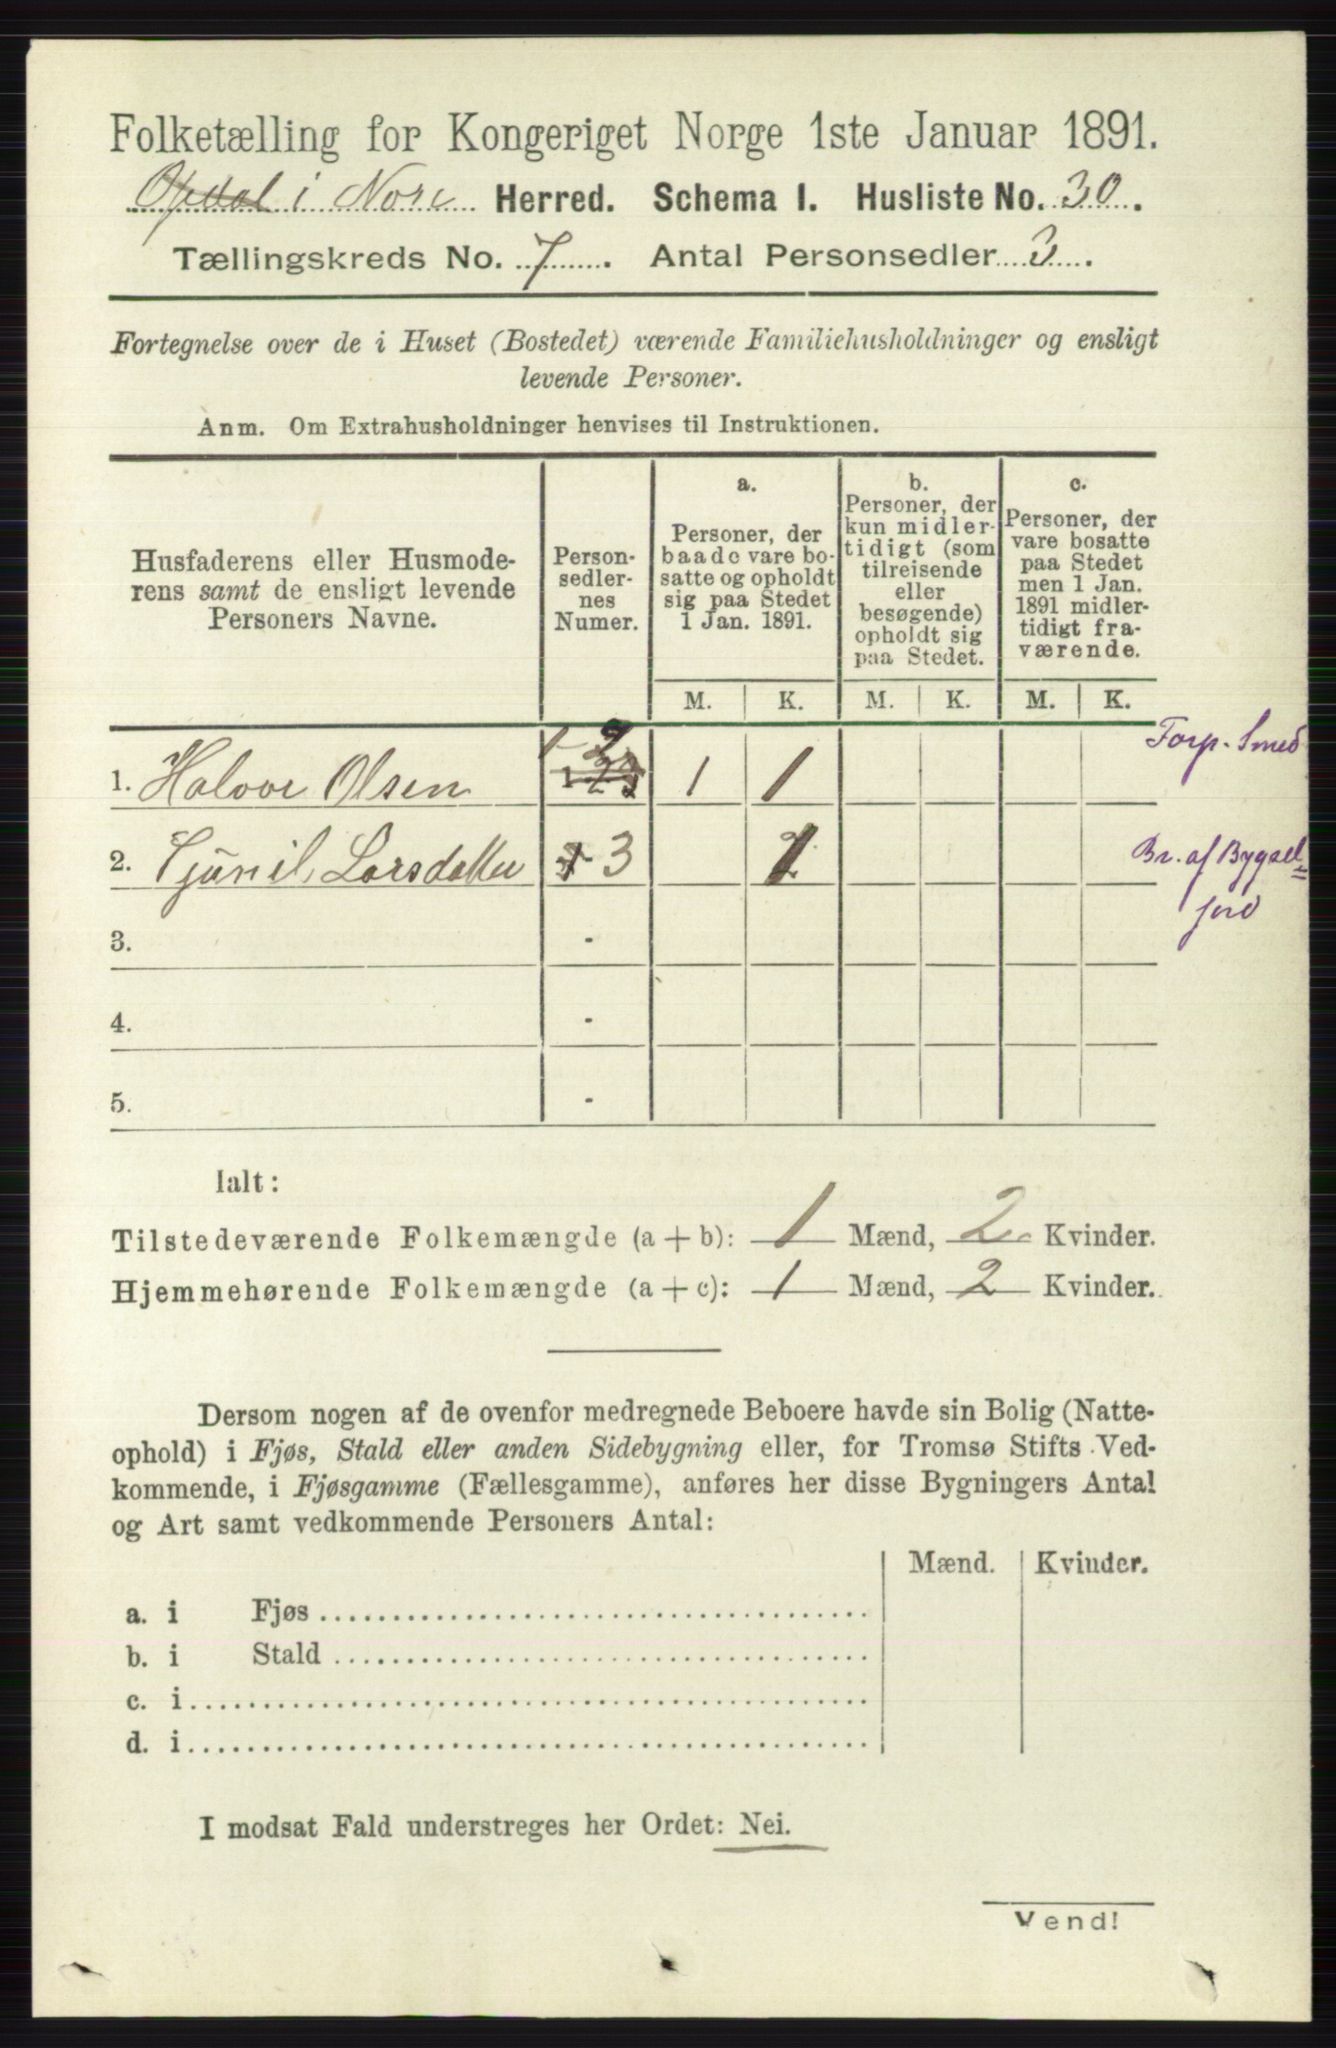 Folketælling for Kongeriget Norge 1ste Januar 1891.
Opdal i Nore Herred. Schema I. Husliste No. 30.
Tællingskreds No. 7. Antal Personsedler 3.
Fortegnelse over de i Huset (Bostedet) værende Familiehusholdninger og ensligt
levende Personer.
Anm. Om Extrahusholdninger henvises til Instruktionen.
Husfaderens eller Husmode-
rens samt de ensligt levende
Personers Navne.
Person-
sedler-
nes
Numer.
a.
Personer, der
baade vare bo-
satte og opholdt
sig paa Stedet
1 Jan. 1891.
b.
Personer, der
kun midler-
tidigt (som
tilreisende
eller
besøgende)
opholdt sig
paa Stedet.
c.
Personer, der
vare bosatte
paa Stedet
men 1 Jan.
1891 midler-
tidigt fra-
værende.
M. K. M. K. M. K.
1. Halvor Olsen 1-2 1 1 Forp. Smed
2. Larsdatter 3 1 Br. af Bygsel=
jord
3. -
4. -
5. -
Ialt:
Tilstedeværende Folkemængde (a + b): 1 Mænd, 2 Kvinder.
Hjemmehørende Folkemængde (a + c): 1 Mænd, 2 Kvinder.
Dersom nogen af de ovenfor medregnede Beboere havde sin Bolig (Natte-
ophold) i Fjøs, Stald eller anden Sidebygning eller, for Tromsø Stifts Ved-
kommende, i Fjøsgamme (Fællesgamme), anføres her disse Bygningers Antal
og Art samt vedkommende Personers Antal:
Mænd. Kvinder.
a. i Fjøs
b. i Stald
c. i
d. i
I modsat Fald understreges her Ordet: Nei.
Vend!